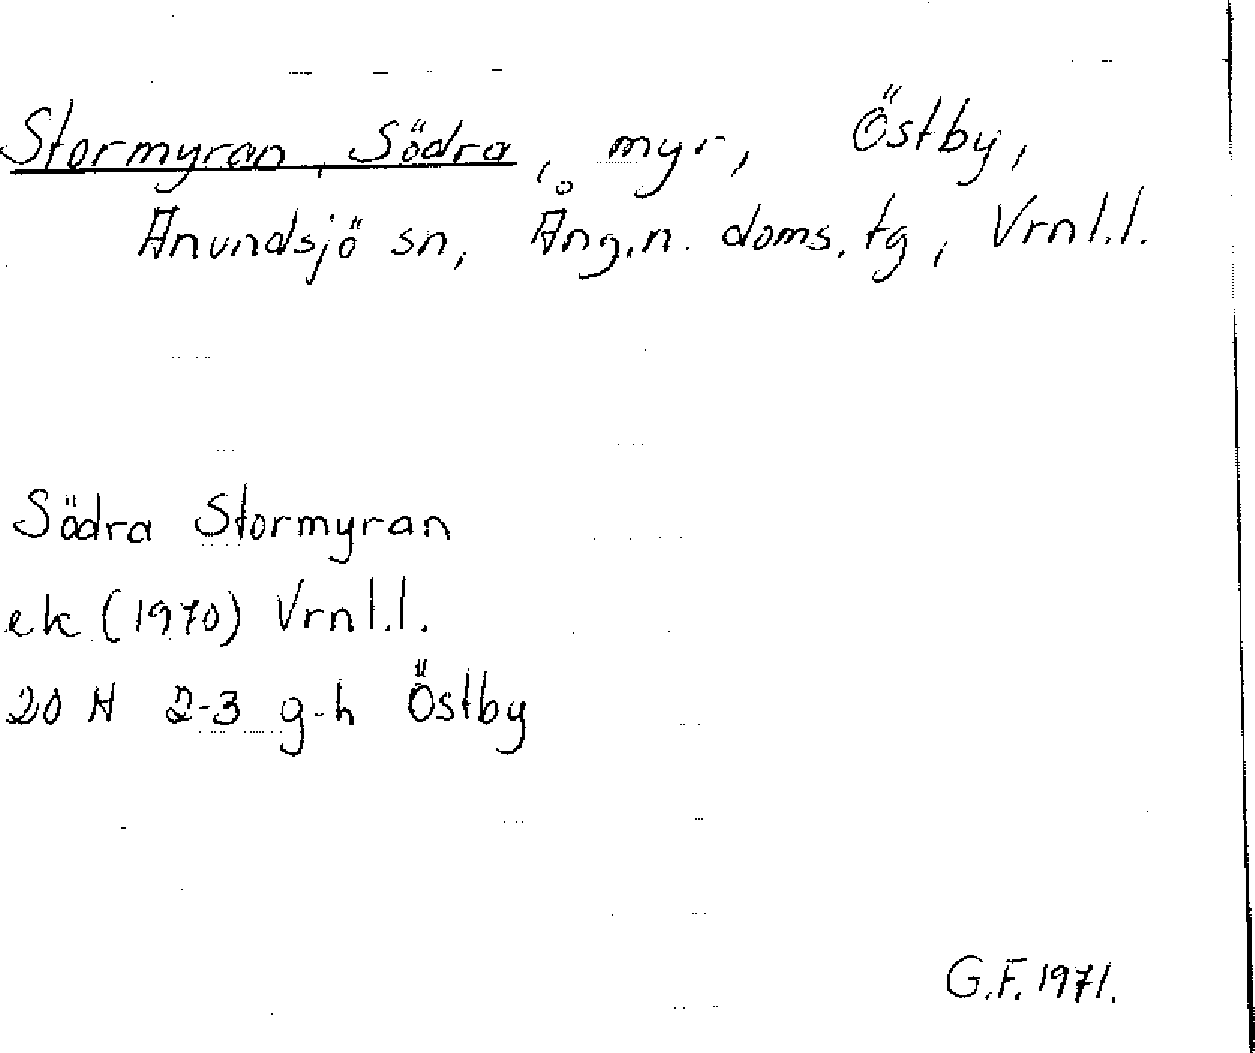 Stormyran, Södra, myr, Östby,
Anundsjö sn, Ång.n. doms.tg, Vrnl.l.
Södra Stormyran
ek (1970) Vrnl.l.
20 H 2-3 g-h Östby
G.F. 1971.